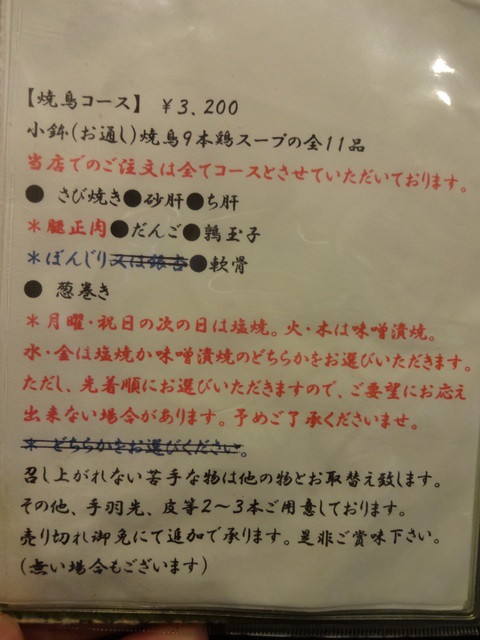 【焼鳥コース】 ￥3,200
小鉢(お通し)焼鳥9本鶏スープの全11品
当店でのご注文は全てコースとさせていただいております。
● さび焼き●砂肝●ち肝
＊腿正肉●だんご●鶉玉子
＊ぼんじり又は銀杏●軟骨
● 葱巻き
＊月曜・祝日の次の日は塩焼。火・木は味噌漬焼。
水・金は塩焼か味噌漬焼のどちらかをお選びいただきます。
ただし、先着順にお選びいただきますので、ご要望にお応え
出来ない場合があります。予めご了承くださいませ。
＊ どちらかをお選びください。
召し上がれない苦手な物は他の物とお取替え致します。
その他、手羽先、皮等2〜3本ご用意しております。
売り切れ御免にて追加で承ります。是非ご賞味下さい。
(無い場合もございます)